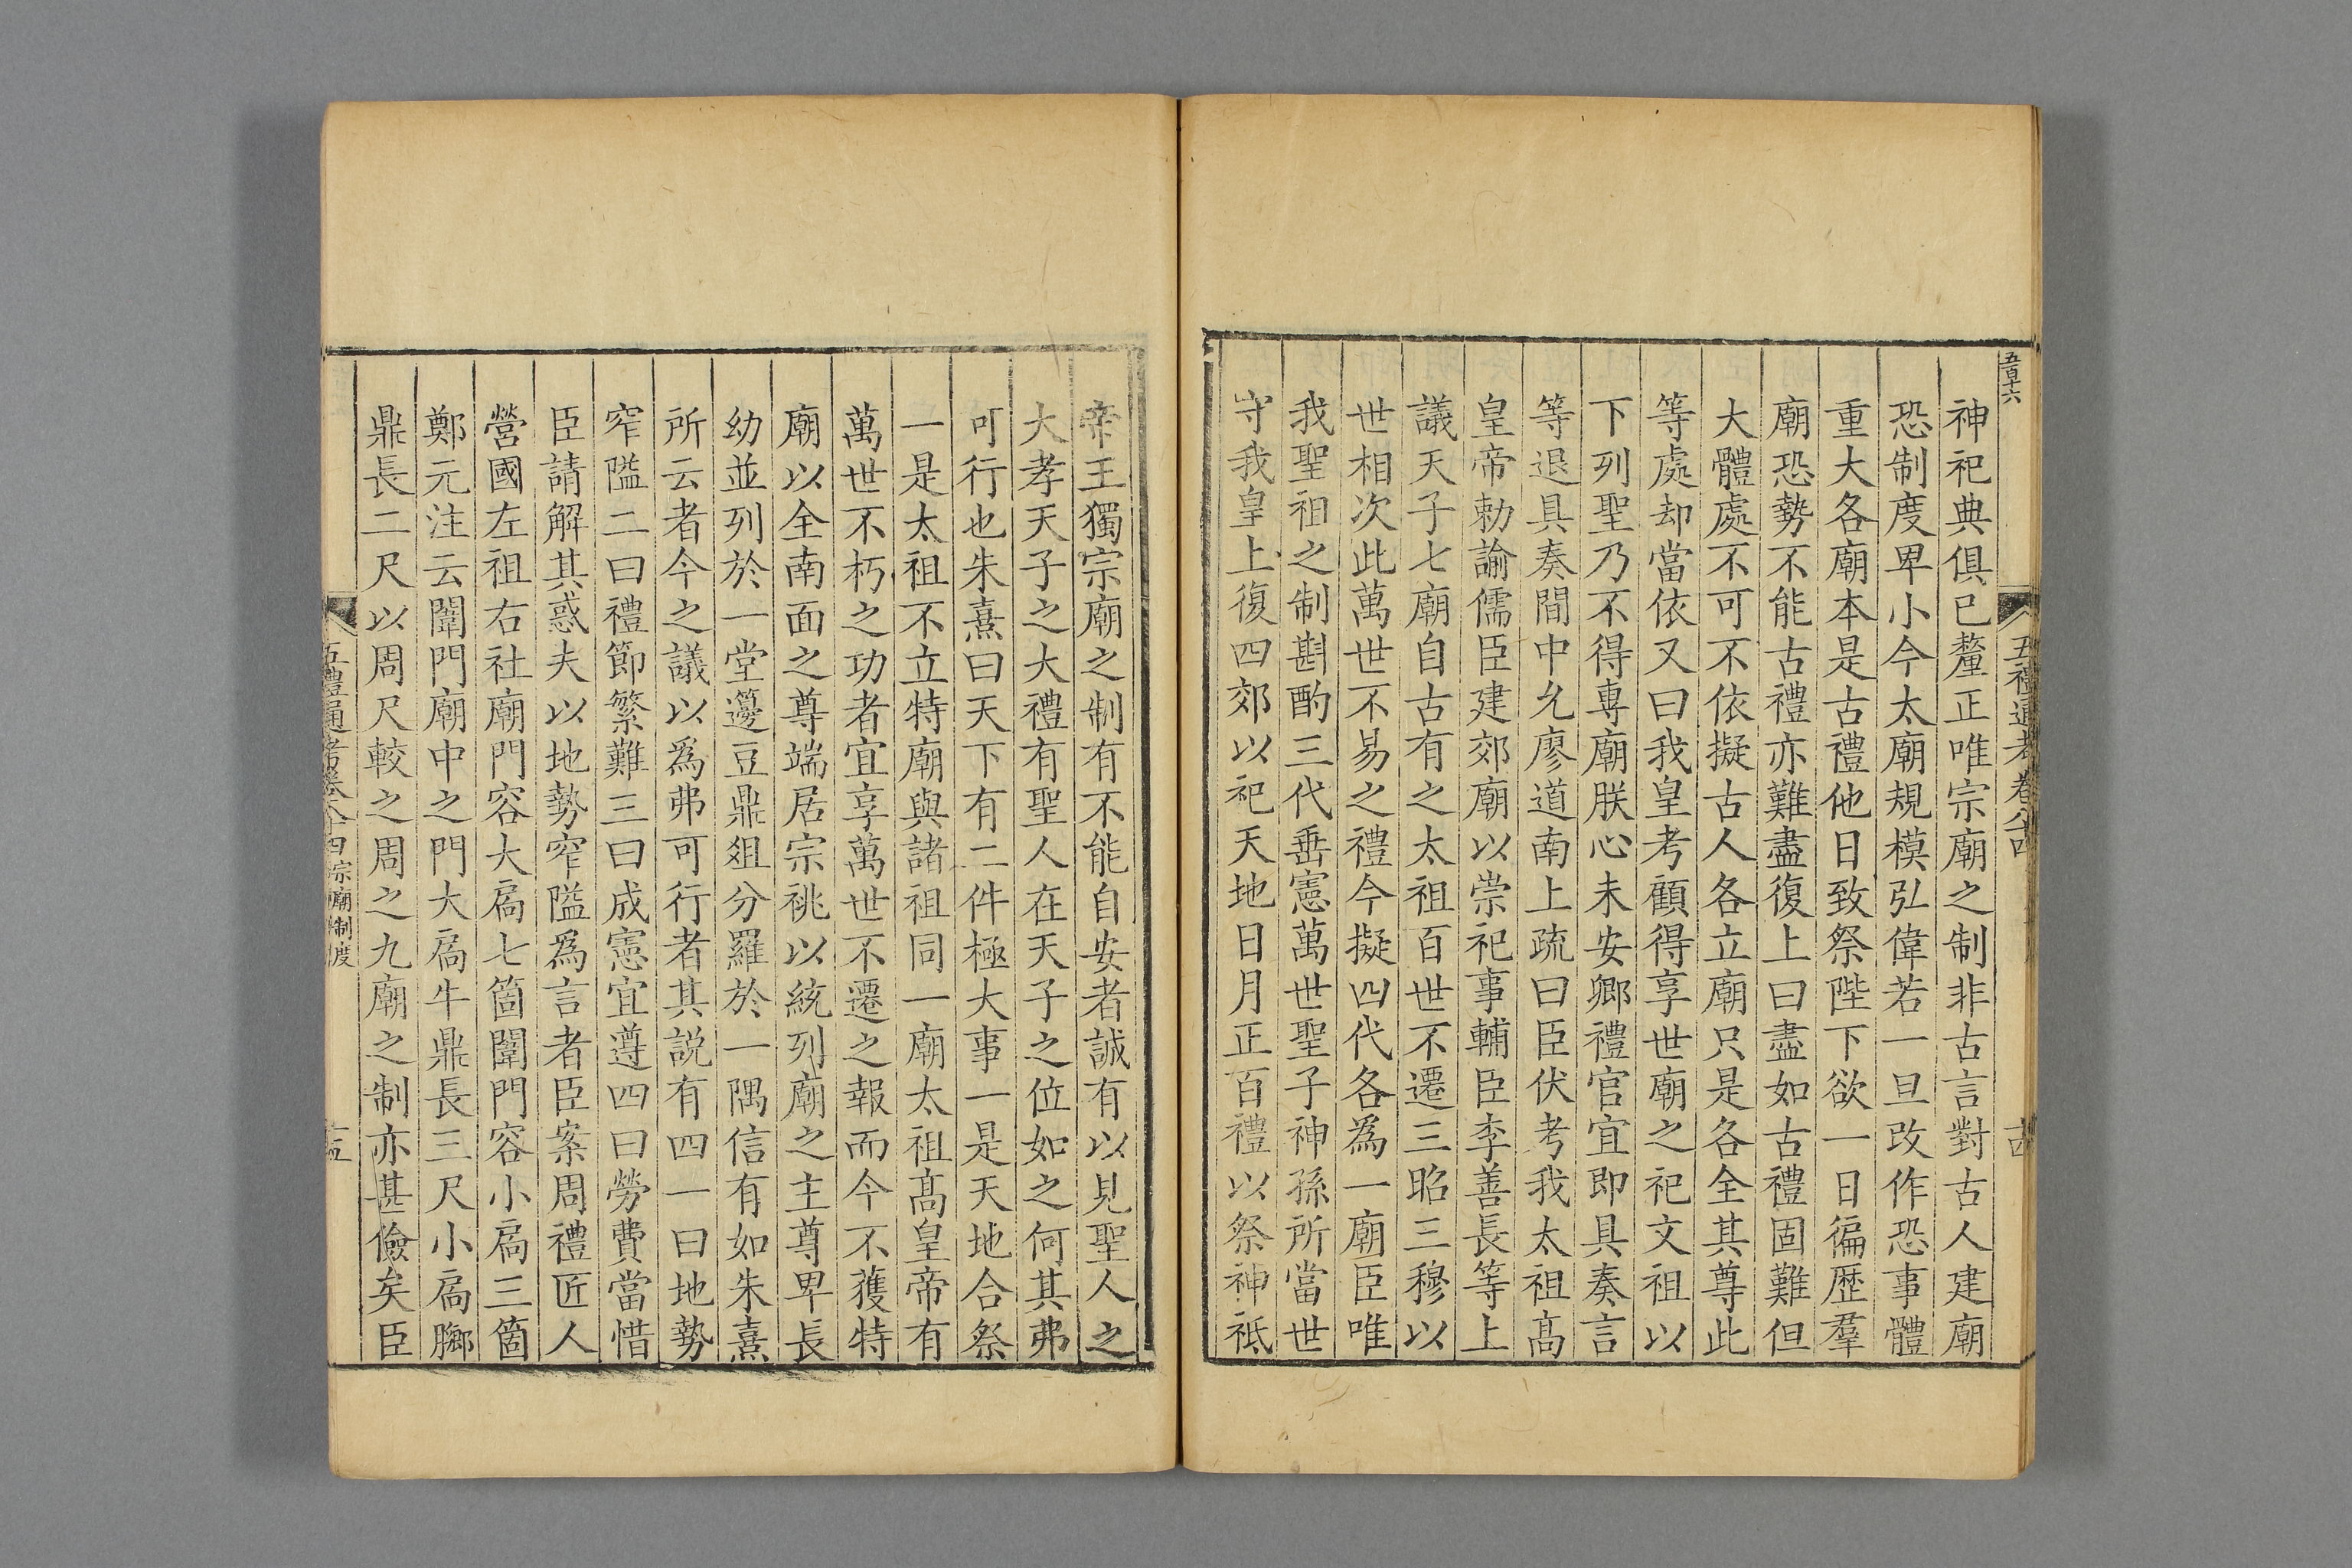 五百十六
五禮通考卷八十四
十四
神祀典俱已釐正唯宗廟之制非古言對古人建廟
恐制度卑小今太廟規模弘偉若一旦改作恐事體
重大各廟本是古禮他日致祭陛下欲一日徧歷羣
廟恐勢不能古禮亦難盡復上曰盡如古禮固難但
大體處不可不依擬古人各立廟只是各全其尊此
等處却當依又曰我皇考顧得享世廟之祀文祖以
下列聖乃不得專廟朕心未安卿禮官宜即具奏言
等退具奏間中允廖道南上疏曰臣伏考我太祖髙
皇帝勅諭儒臣建郊廟以崇祀事輔臣李善長等上
議天子七廟自古有之太祖百世不遷三昭三穆以
世相次此萬世不易之禮今擬四代各為一廟臣唯
我聖祖之制斟酌三代垂憲萬世聖子神孫所當世
守我皇上復四郊以祀天地日月正百禮以祭神祗
帝王獨宗廟之制有不能自安者誠有以見聖人之
大孝天子之大禮有聖人在天子之位如之何其弗
可行也朱熹曰天下有二件極大事一是天地合祭
一是太祖不立特廟與諸祖同一廟太祖髙皇帝有
萬世不朽之功者宜享萬世不遷之報而今不獲特
廟以全南面之尊端居宗祧以統列廟之主尊卑長
幼並列於一堂籩豆鼎俎分羅於一隅信有如朱熹
所云者今之議以為弗可行者其説有四一曰地勢
窄隘二曰禮節繁難三曰成憲宜遵四曰勞費當惜
臣請解其惑夫以地勢窄隘為言者臣案周禮匠人
營國左祖右社廟門容大扃七箇闈門容小扃三箇
鄭元注云闈門廟中之門大扃牛鼎長三尺小扃膷
鼎長二尺以周尺較之周之九廟之制亦甚儉矣臣
五禮通考卷八十四宗廟制度
十五